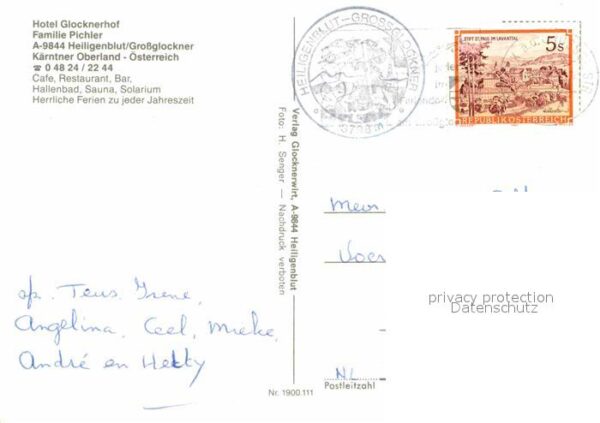 Hotel Glocknerhof
Familie Pichler
A-9844 Heiligenblut/Großglockner
Kärntner Oberland - Österreich
☎ 0 48 24 / 22 44
Cafe, Restaurant, Bar,
Hallenbad, Sauna, Solarium
Herrliche Ferien zu jeder Jahreszeit
HEILIGENBLUT-GROSSGLOCKNER
3798 m
STIFT ST. PAUL IM LAVANTTAL
5 S
REPUBLIK ÖSTERREICH
Verlag Glocknerwirt, A-9844 Heiligenblut
Foto: H. Senger — Nachdruck verboten
op. Teus, Irene,
Angelina, Ceel, Mieke,
André en Hetty
NL
Postleitzahl
Nr. 1900.111
privacy protection
Datenschutz